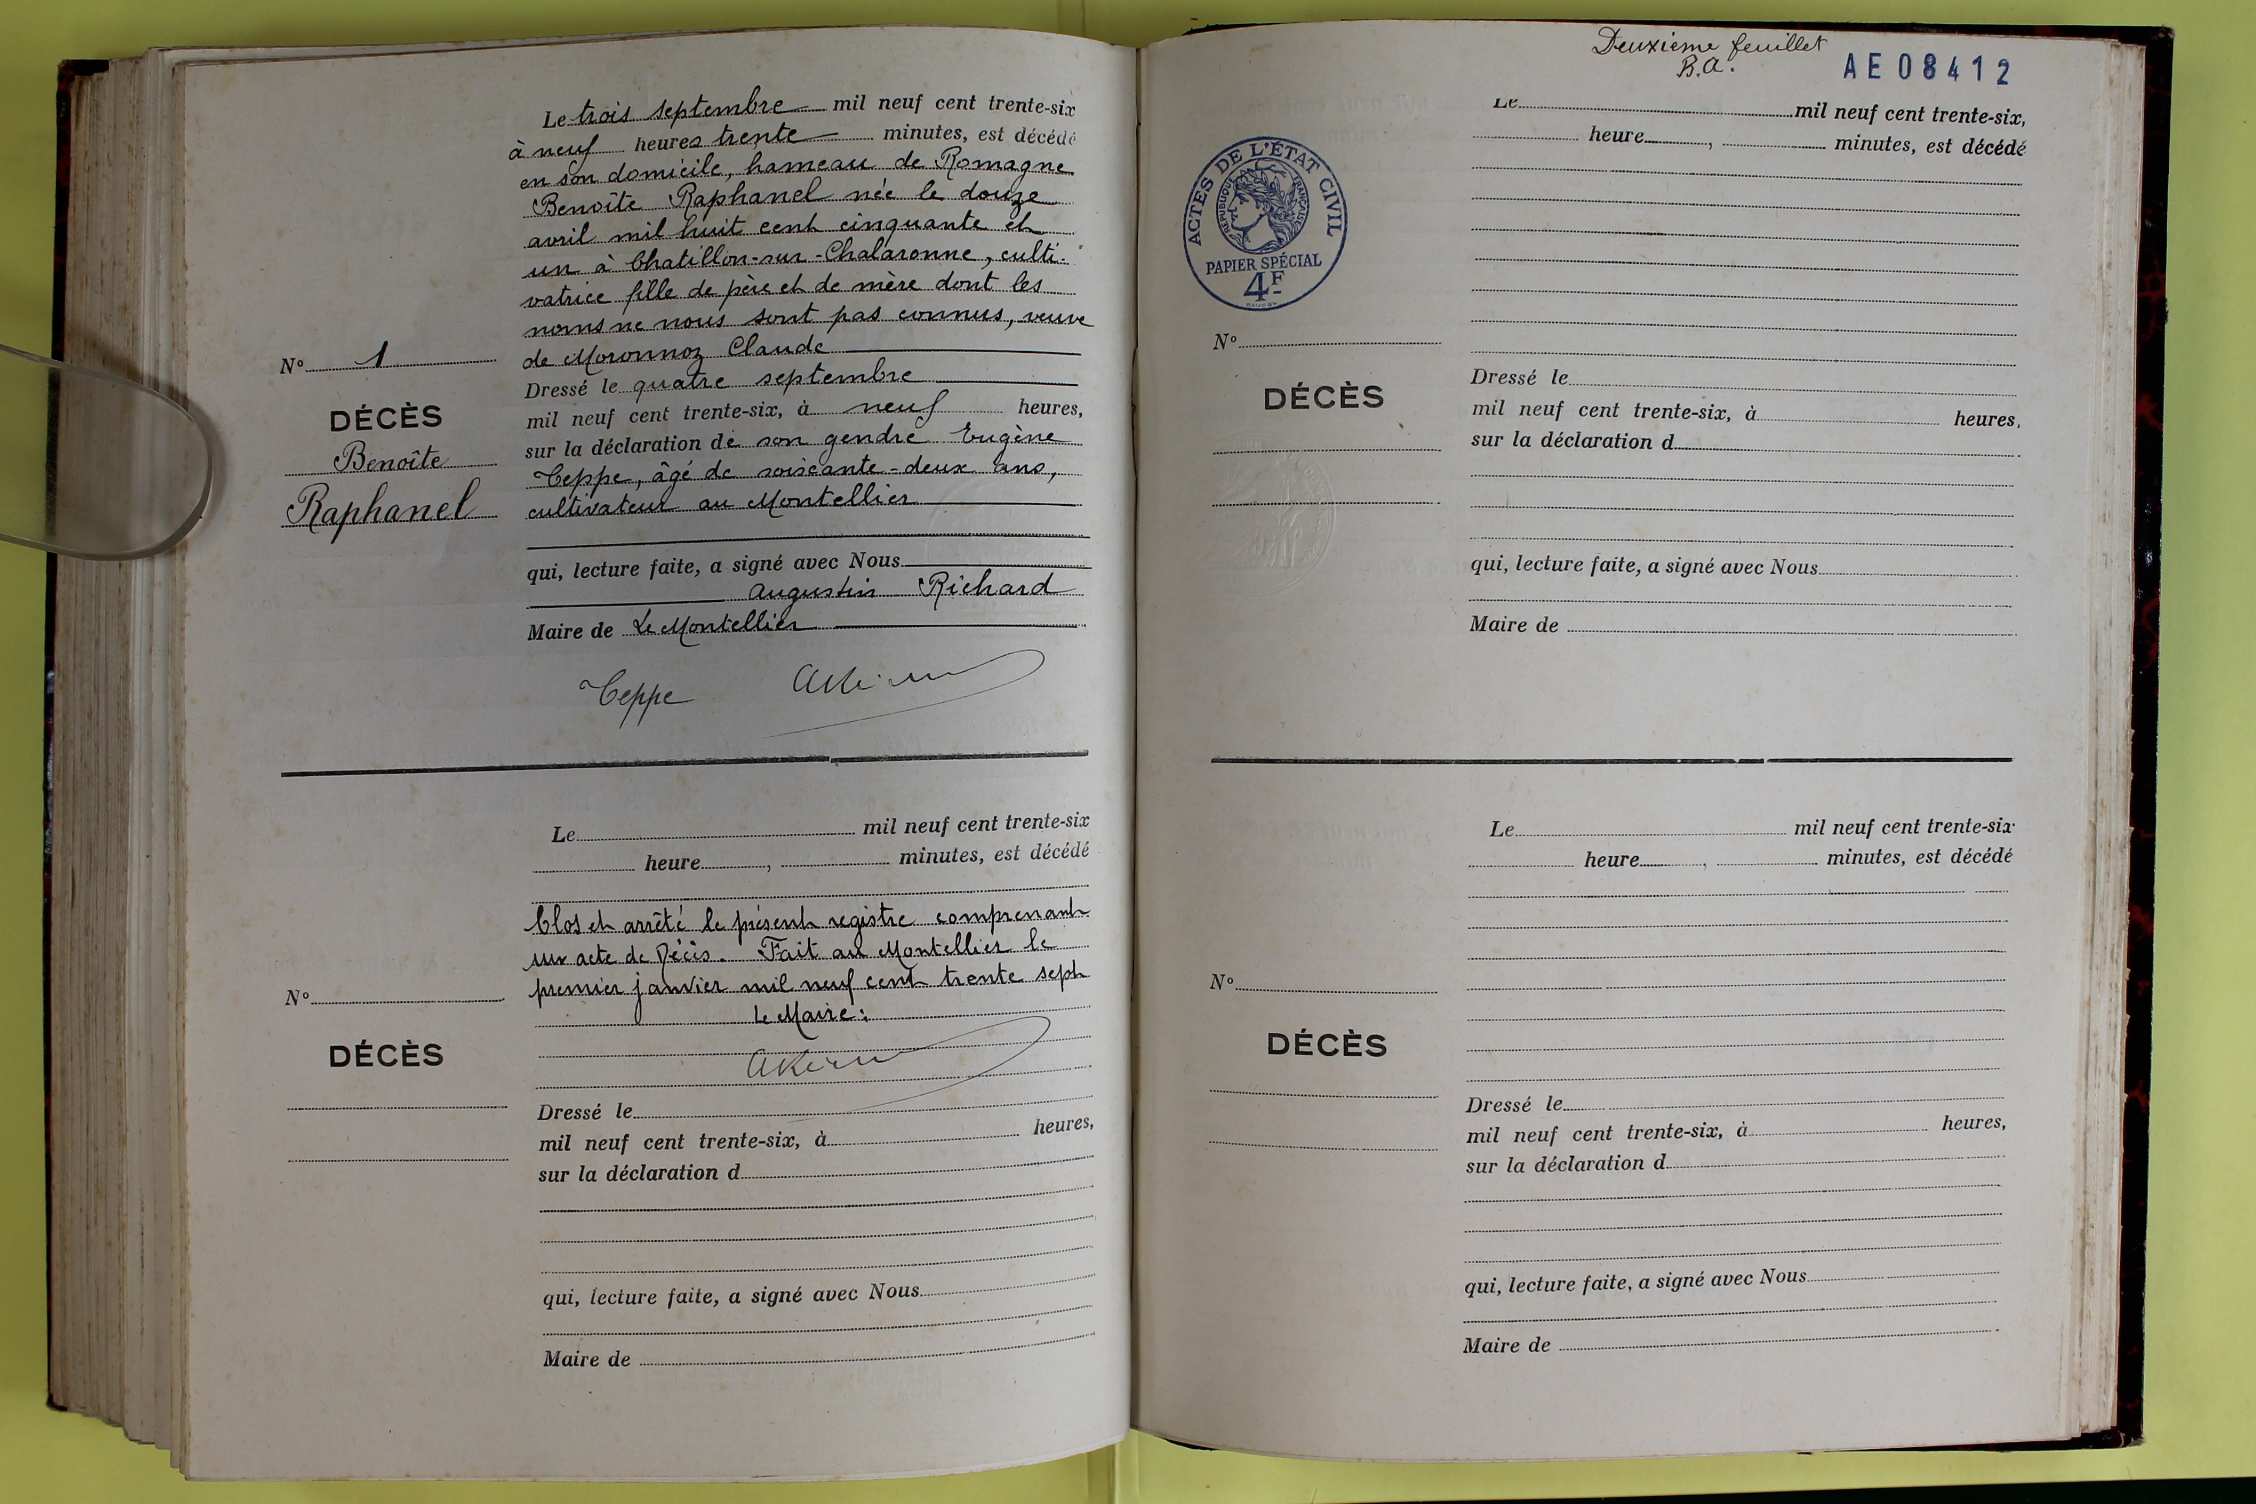 Le trois septembre mil neuf cent trente-six
à neuf heures trente minutes, est décédé
en son domicile, hameau de Romagne
Benoîte Raphanel née le douze
avril mil huit cent cinquante et
un à Chatillon-sur-Chalaronne, culti-
vatrice fille de père et de mère dont les
noms ne nous sont pas connus, veuve
de Moronnoz Claude
N° 1
DÉCÈS
Benoîte
Raphanel
Dressé le quatre septembre
mil neuf cent trente-six, à neuf heures,
sur la déclaration de son gendre Eugène
Teppe, âgé de soixante-deux ans,
cultivateur au Montellier
qui, lecture faite, a signé avec Nous
Augustin Richard
Maire de Le Montellier
Teppe
Le mil neuf cent trente-six
heure , minutes, est décédé
Clos et arrêté le présent registre comprenant
un acte de Décès. Fait au Montellier le
premier janvier mil neuf cent trente sept
Le Maire:
N°
DÉCÈS
Dressé le
mil neuf cent trente-six, à heures,
sur la déclaration d
qui, lecture faite, a signé avec Nous
Maire de
Deuxième feuillet
B.A.
AE08412
ACTES DE L'ÉTAT CIVIL
RÉPUBLIQUE FRANÇAISE
PAPIER SPÉCIAL
4F
Le mil neuf cent trente-six,
heure , minutes, est décédé
N°
DÉCÈS
Dressé le
mil neuf cent trente-six, à heures,
sur la déclaration d
qui, lecture faite, a signé avec Nous
Maire de
Le mil neuf cent trente-six
heure , minutes, est décédé
N°
DÉCÈS
Dressé le
mil neuf cent trente-six, à heures,
sur la déclaration d
qui, lecture faite, a signé avec Nous
Maire de